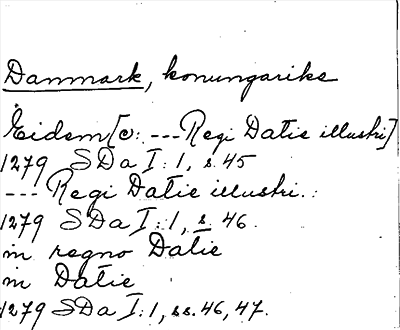 Danmark, konungarike
Eidem [ɔ: --- Regi Datie illustri]
1279 SDa I:1, s. 45
--- Regi Datie illustri..
1279 SDa I:1, s. 46.
in regno Datie
in Datie
1279 SDa I:1, ss. 46, 47.